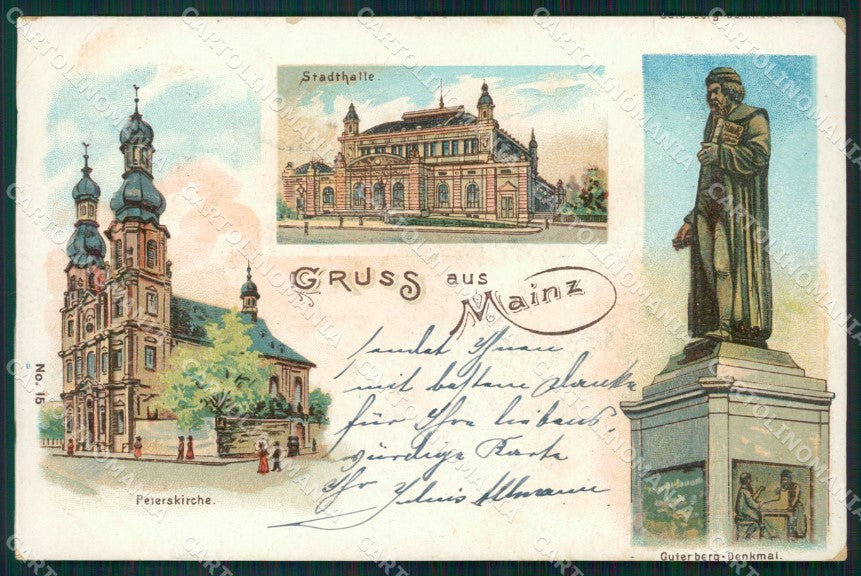 Stadthalle.
GRUSS aus
Mainz
sendet Ihnen
mit bestem Danke
für Ihre liebens,
würdige Karte
Ihr Julius Ullmann
No. 15
Peterskirche.
Guterberg-Denkmal.
CARTOLINOMANIA